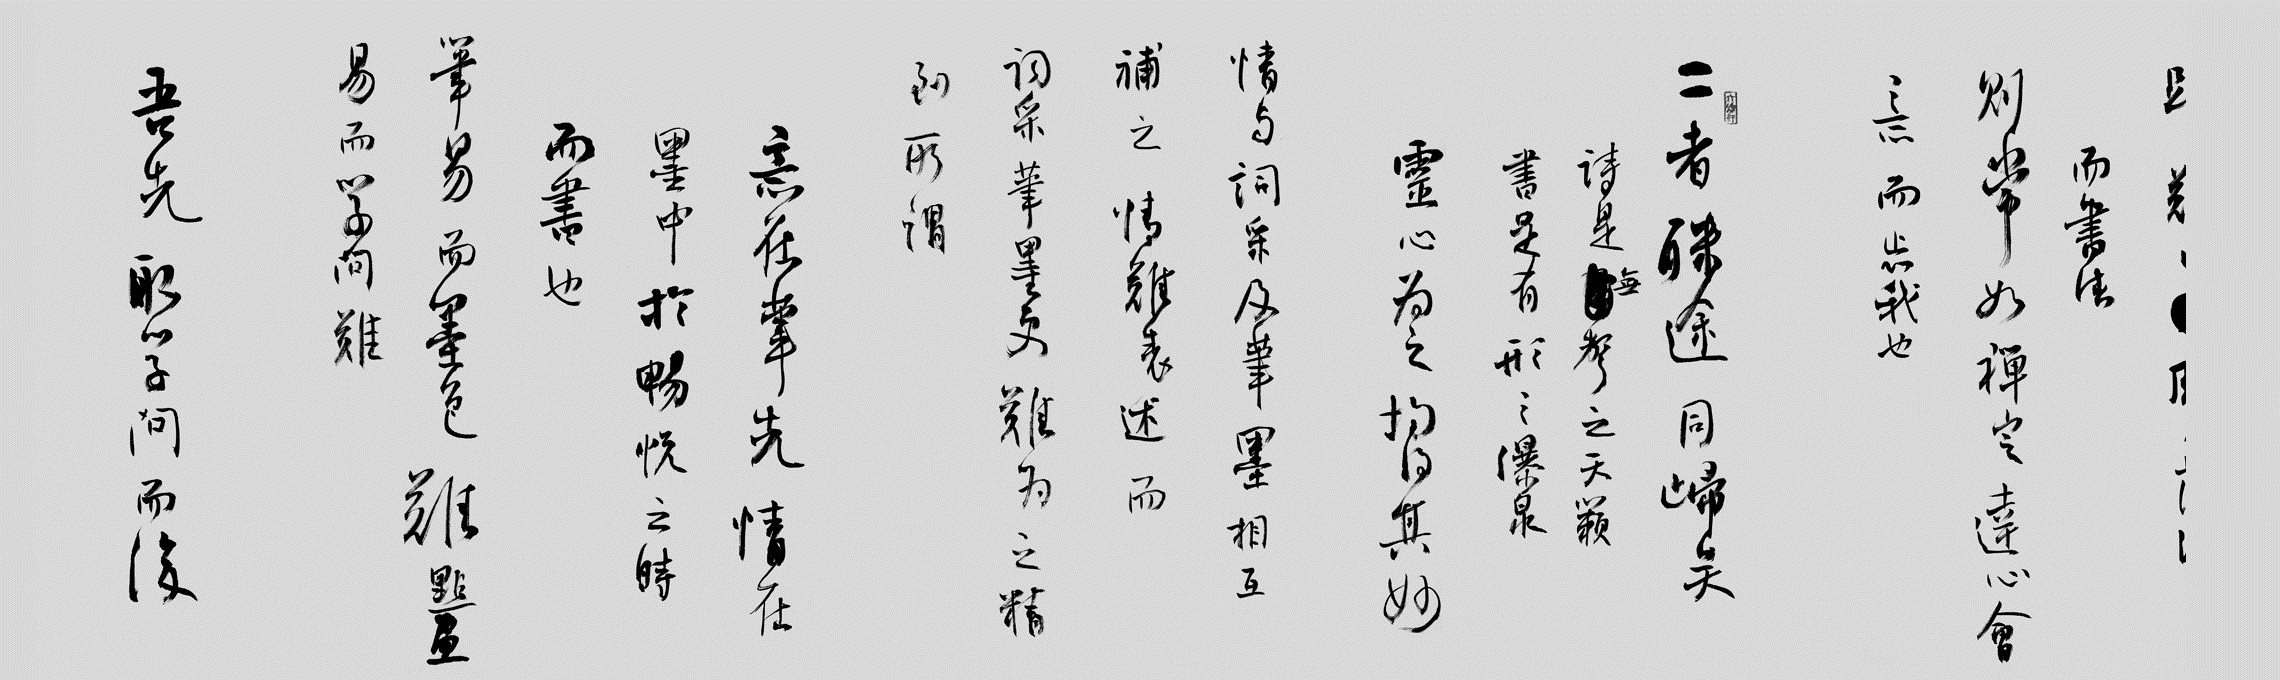 而書法
則常如禪定達心會
意而忘我也
二者殊途同歸矣
詩是無聲之天籟
書是有形之瀑泉
靈心為之均得其妙
情与詞采及筆墨相互
補之情難表述而
詞采筆墨更難為之精
到所謂
意在筆先情在
墨中於暢悅之時
而書也
筆易而墨色難點畫
易而字間難
吾先取字間而後